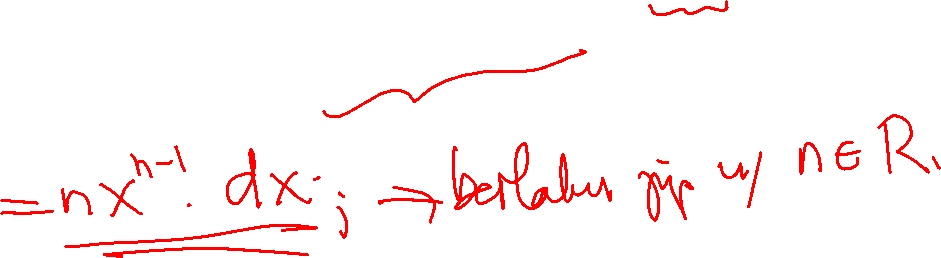 = nx^{n-1} . dx ; → berlaku jg u/ n ∈ R.